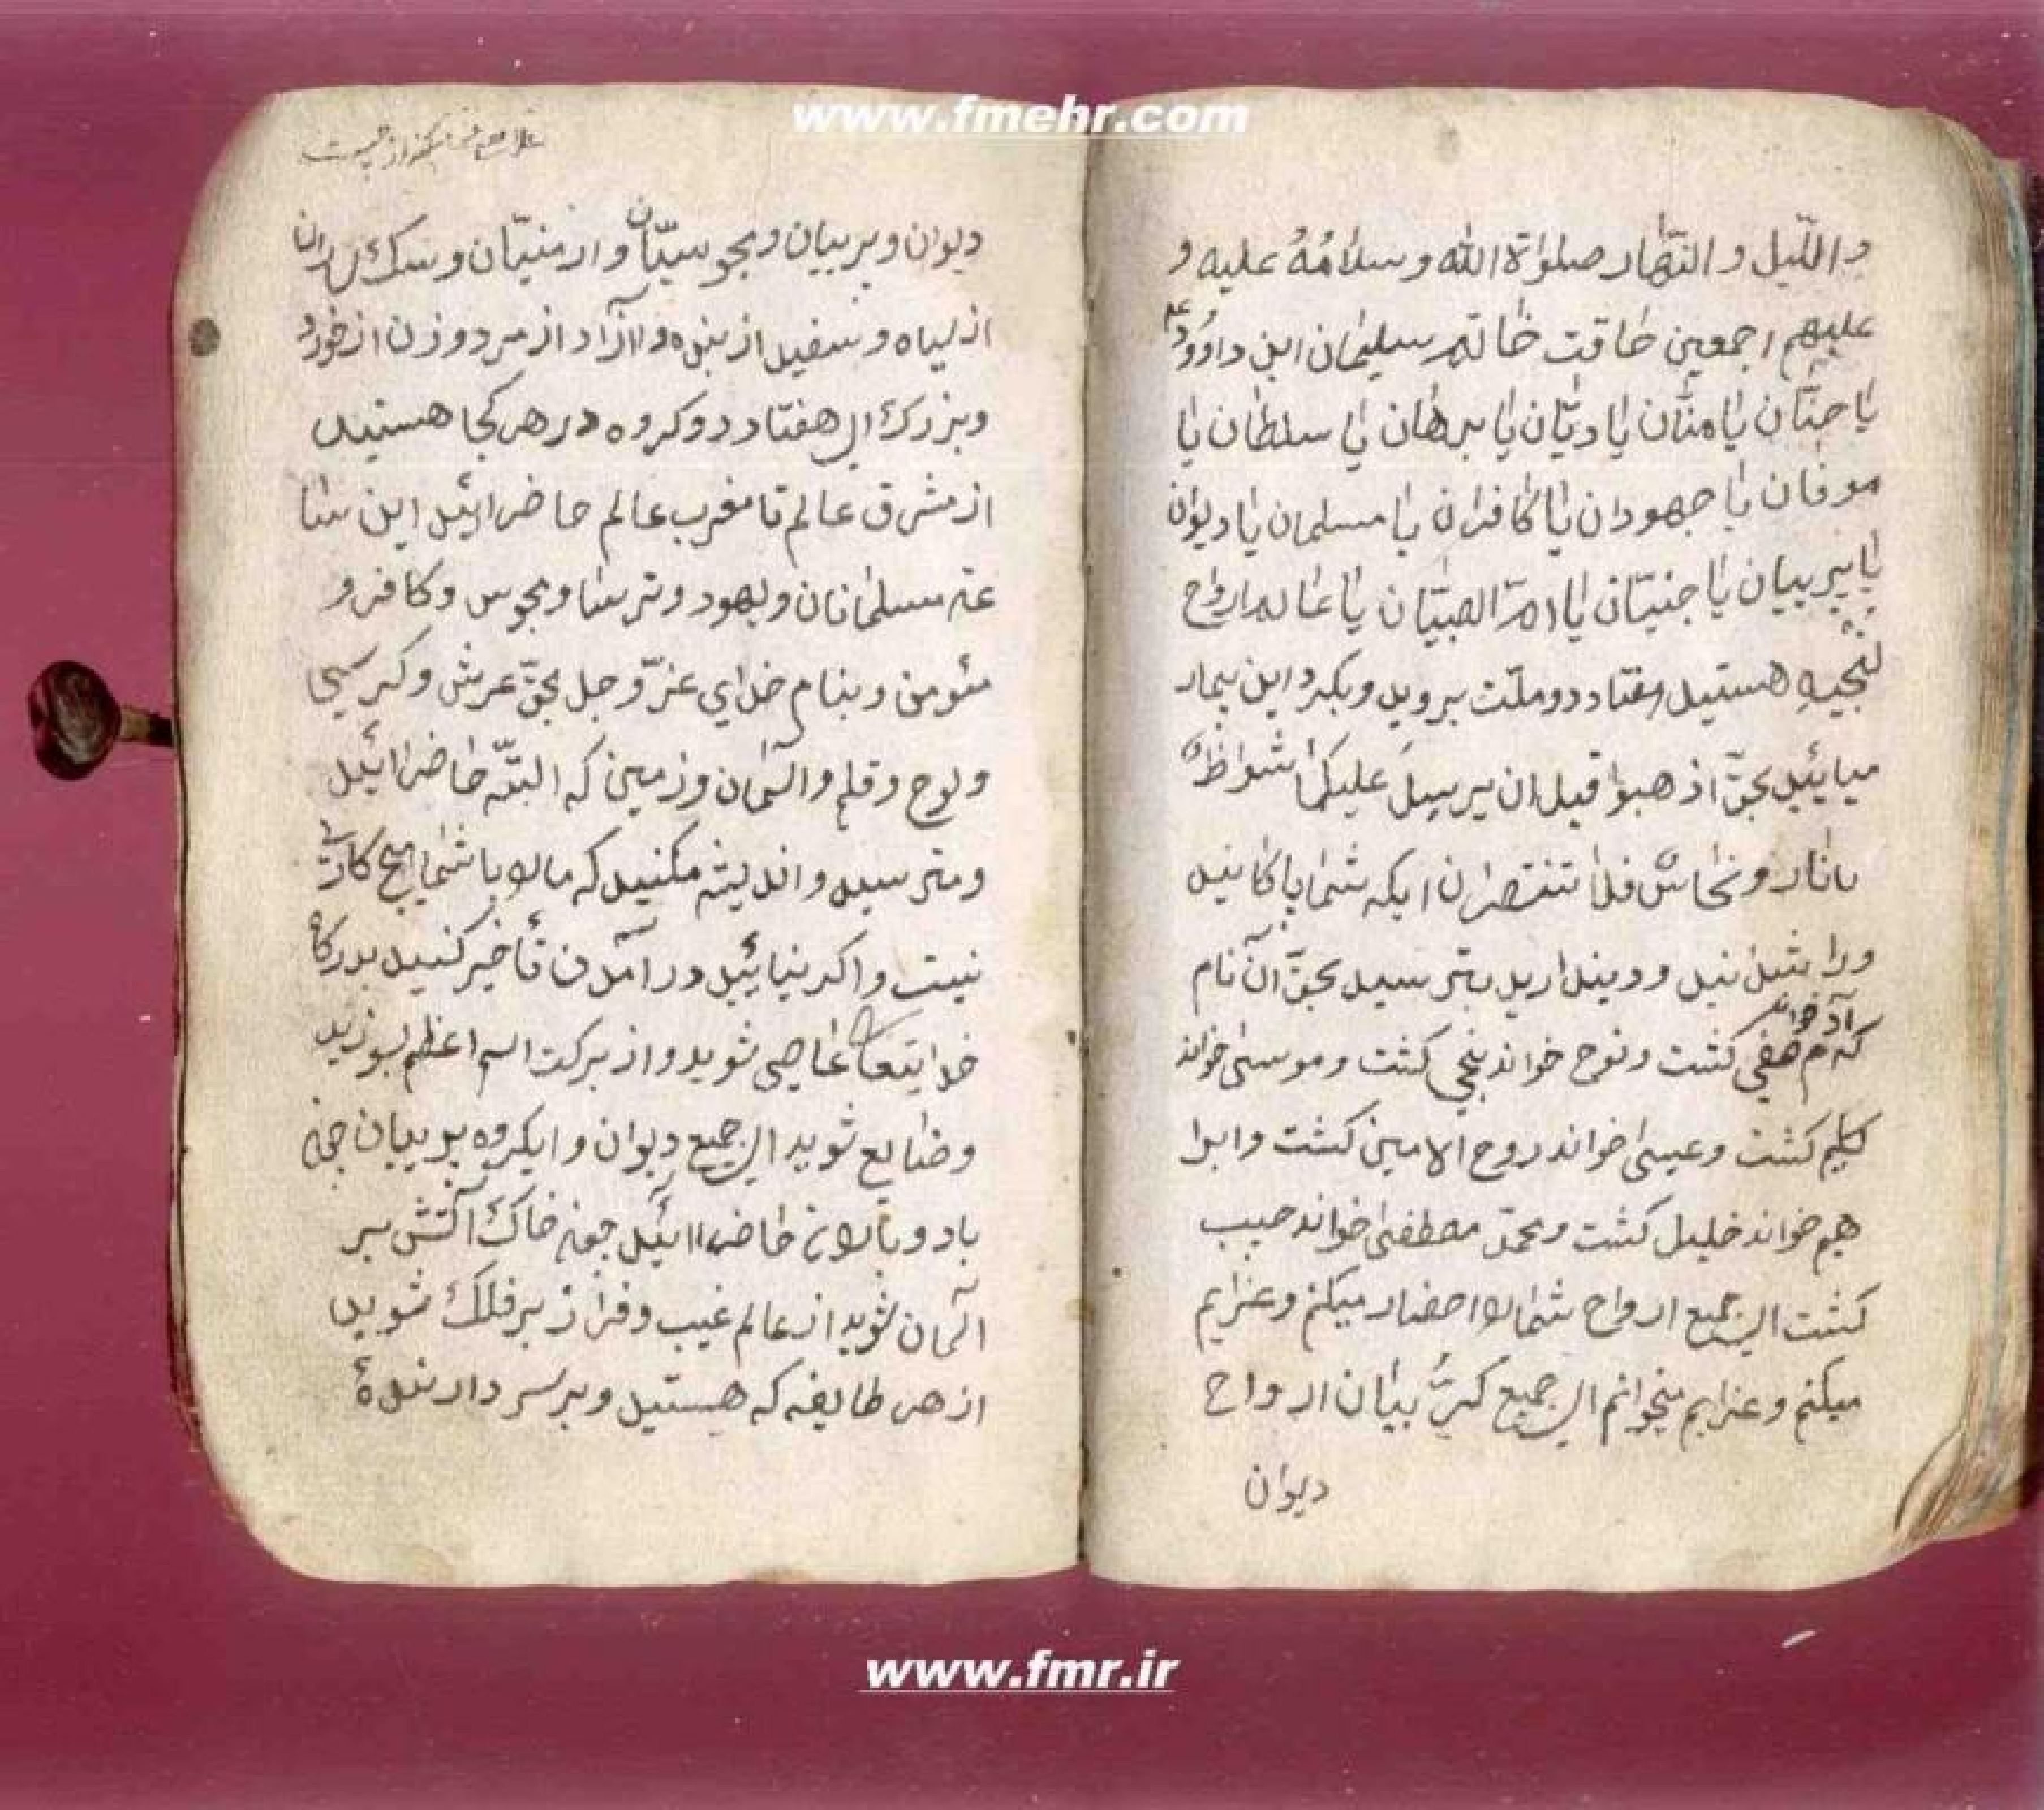 www.fmehr.com
و اللّیل و النّهار صلواة الله و سلامُهُ علیه و
علیهم اجمعین طاقت خاتم سلیمان ابن داوُود
یا حنّان یا منّان یا دیّان یا برهان یا سلطان یا
موفان یا جهودان یا کافران یا مسلمان یا دیوان
یا پریان یا جنیّان یا امّ الصبیّان یا عالم ارواح
هستید هفتاد دو ملّت بروید و بکرد این بیمار
میایید بحقّ اذهبوا قبل ان یرسل علیکما شواظٌ
نار و نحاسٌ فلا تنتصران ایکه شما پاکانید
بترسید بحقّ آن نام
که آدم خواند صفی کشت و نوح خواند نجی کشت و موسی خواند
کلیم کشت و عیسی خواند روح الامین کشت و ابرا
هیم خواند خلیل کشت و محمّد مصطفی خواند حبیب
کشت ای جمیع ارواح شما را احضار میکنم و عزایم
میکنم و عزایم میخوانم ای جمیع ارواح
دیوان
دیوان و پریان و مجوسیّان و ارمنیّان و
از سیاه و سفید از بنده و آزاد از مرد و زن از خورد
و بزرک ای هفتاد دو کروه در هر کجا هستید
از مشرق عالم تا مغرب عالم حاضر ایید این
مسلمانان و یهود و ترسا و مجوس و کافر و
مئومن و بنام خدای عزّ و جل بحقّ عرش و کرسی
و لوح و قلم و آسمان و زمین که البتّه حاضر ایید
و مترسید و اندیشه مکنید که ما را با شما هیچ کاری
نیست و اکر نیایید در آمدن تأخیر کنید بدرکاه
خدایتعالی عاصی شوید و از برکت اسم اعظم بسوزید
و ضایع شوید ای جمیع دیوان و ایکروه پریان جنی
باد و حاضر ایید خاک آتش بر
آسمان شوید از عالم غیب و فراز بر فلک شوید
از هر طایفه که هستید و بر سر دارنده
www.fmr.ir